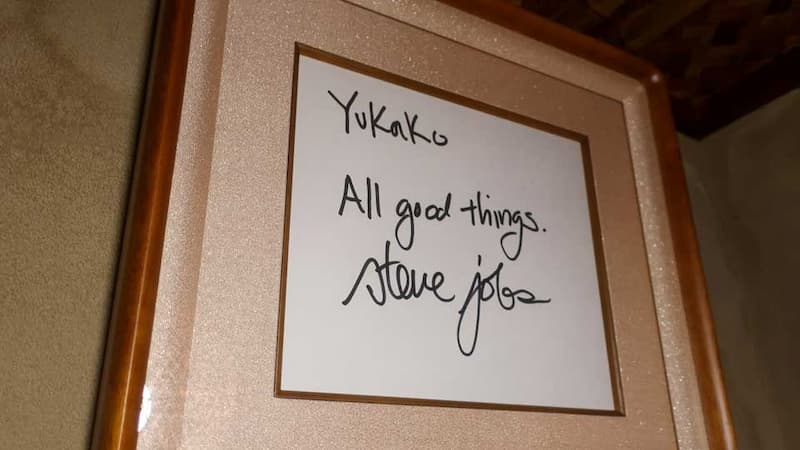 Yukako
All good things.
steve jobs